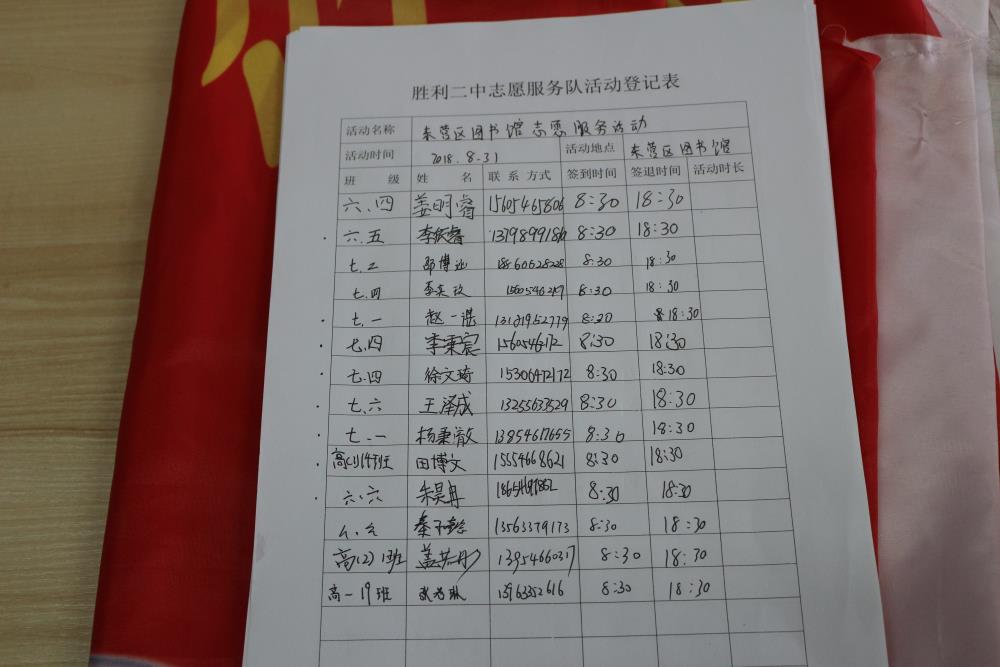 胜利二中志愿服务队活动登记表
活动名称 东营区图书馆志愿服务活动
活动时间 2018.8.31 活动地点 东营区图书馆
班 级 姓 名 联系方式 签到时间 签退时间 活动时长
六.四 姜明睿 15605465806 8:30 18:30
六.五 李庆睿 8:30 18:30
七.二 邵博 18860628228 8:30 18:30
七.四 李奕玫 8:30 18:30
七.一 赵一湛 13181952779 8:20 18:30
七.四 李秉宸 8:30 18:30
七.四 徐文琦 15306472172 8:30 18:30
七.六 王泽成 13255637529 8:30 18:30
七.一 杨秉澈 13854617655 8:30 18:30
高(1)14班 田博文 15554668621 8:30 18:30
六.六 朱昊冉 8:30 18:30
秦 13563379173 8:30 18:30
高(2)1班 盖 13954660317 8:30 18:30
高一19班 张 13963352616 8:30 18:30